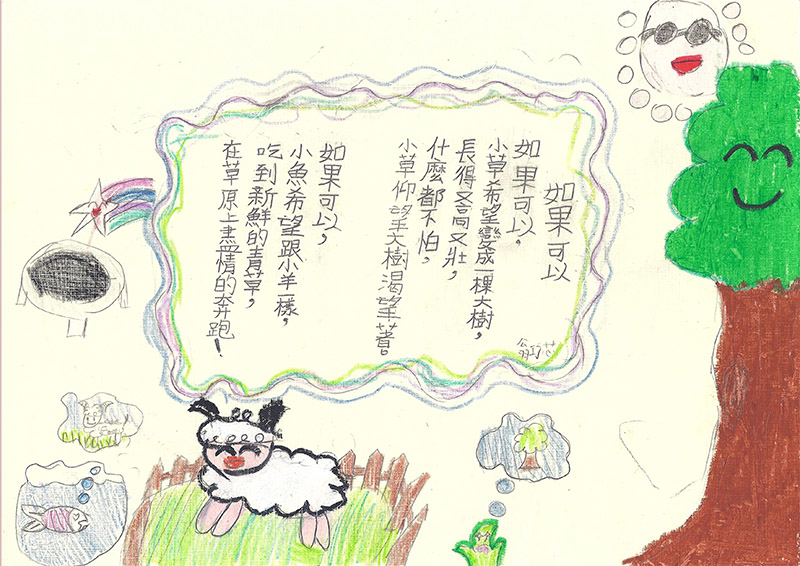 如果可以
如果可以,
小草希望變成一棵大樹,
長得又高又壯,
什麼都不怕,
小草仰望大樹渴望著。
如果可以,
小魚希望跟小羊一樣,
吃到新鮮的青草,
在草原上盡情的奔跑!